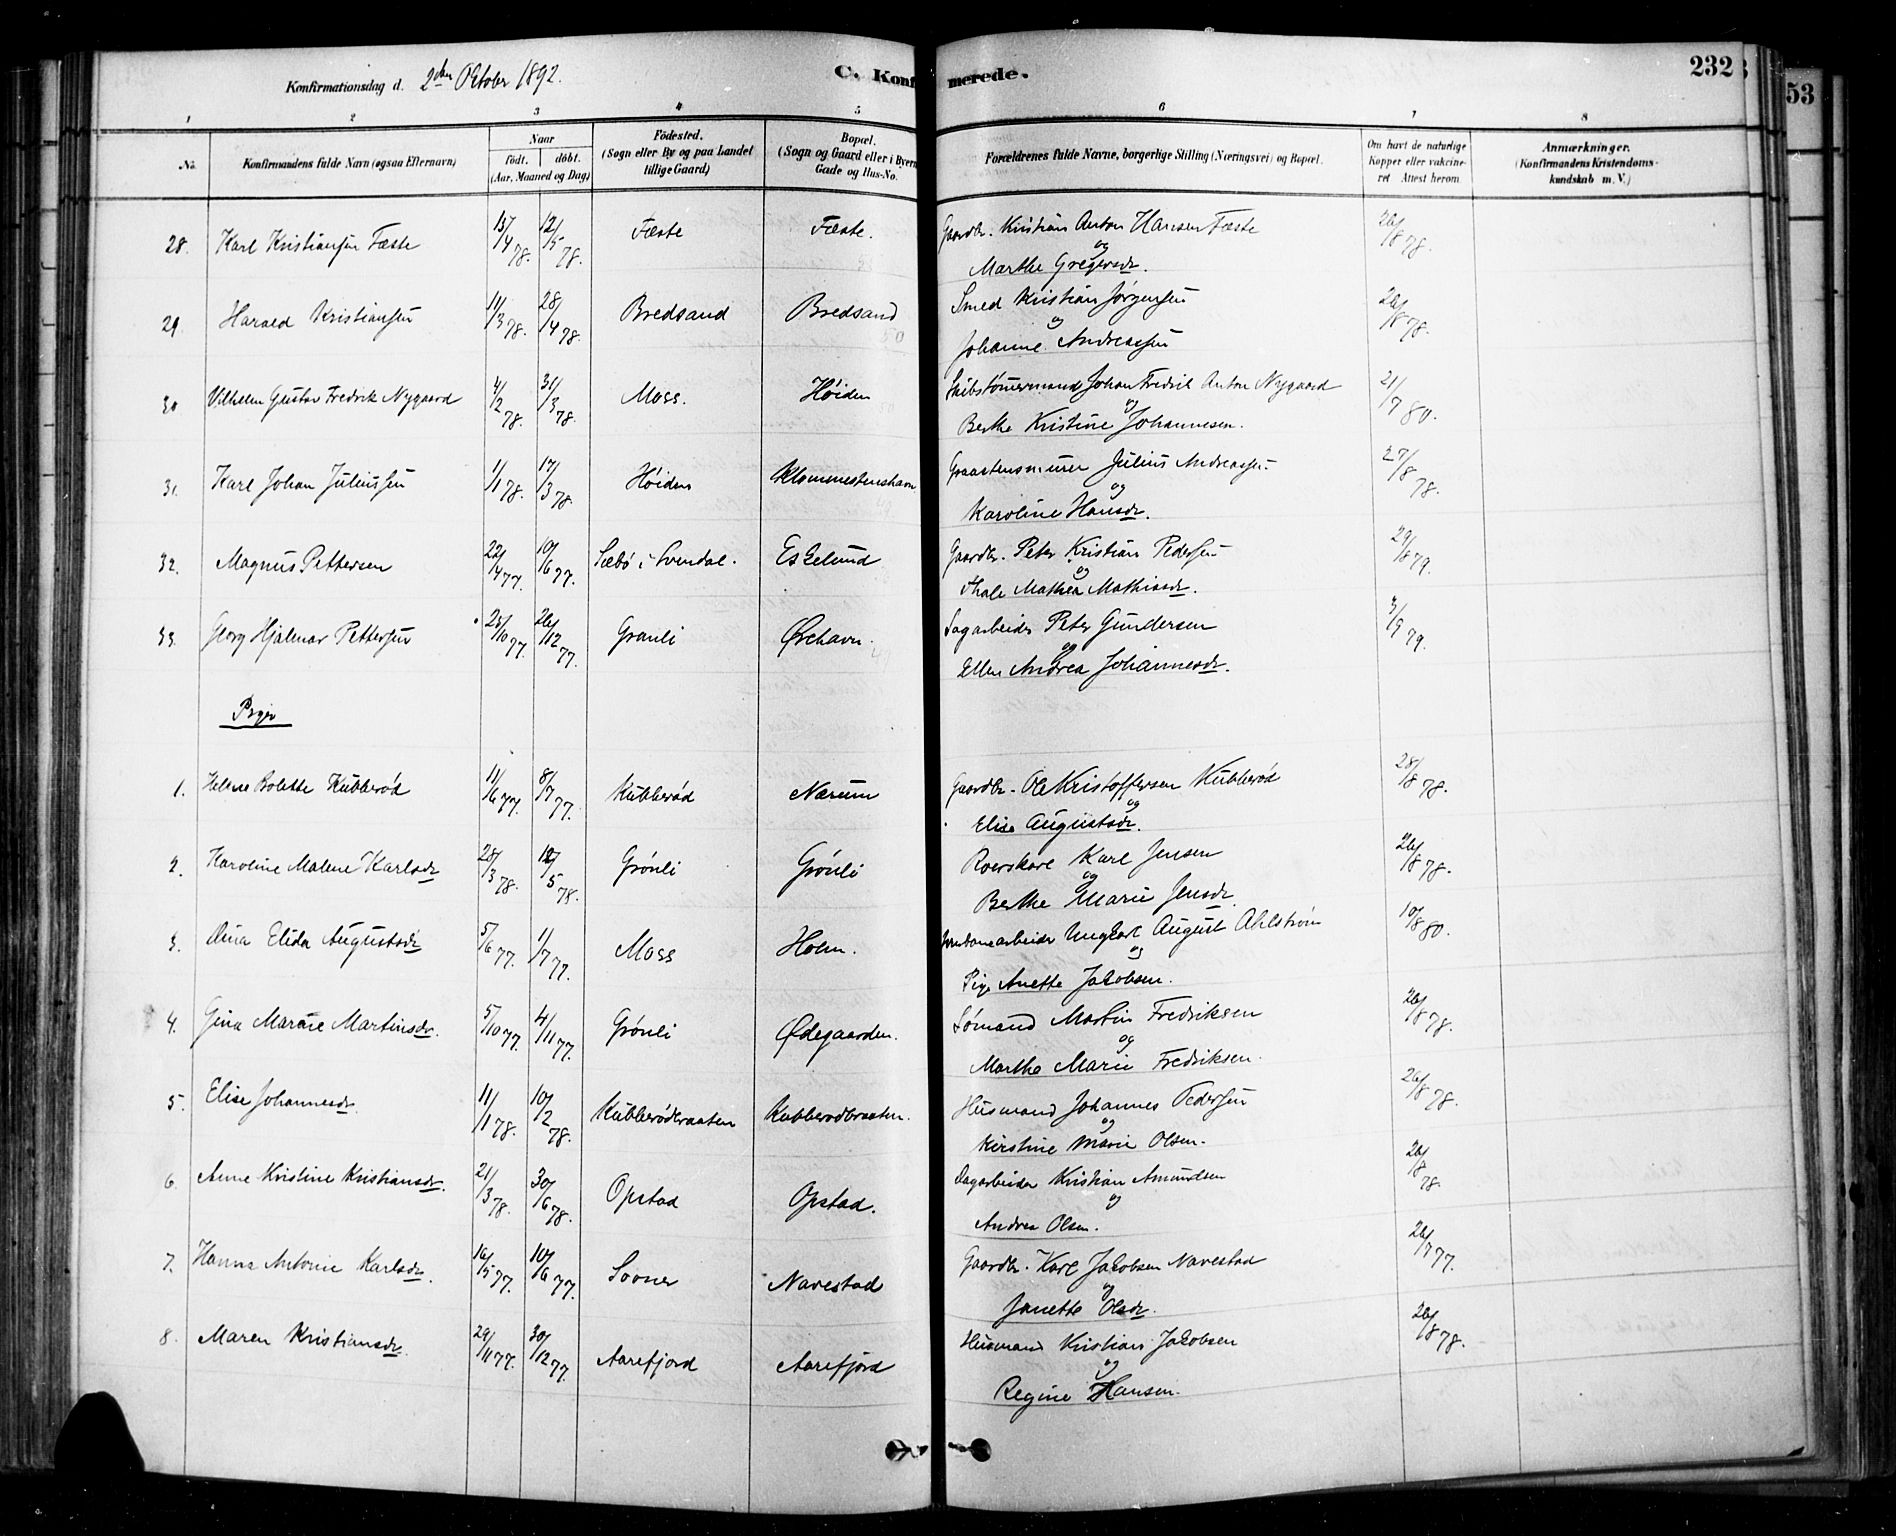 Konfirmationsdag d. 2den Oktober 1892.
C. Konfirmerede.
232
53
1 2 3 4 5 6 7 8
No. Konfirmandens fulde Navn (ogsaa Efternavn) Naar født. døbt. (Aar, Maaned og Dag) Fødested. (Sogn eller By og paa Landet tillige Gaard) Bopæl. (Sogn og Gaard eller i Byerne Gade og Hus-No. Forældrenes fulde Navne, borgerlige Stilling (Næringsvei) og Bopæl. Om havt de naturlige Kopper eller vakcineret Attest herom. Anmærkninger. (Konfirmandens Kristendomskundskab m. V.)
28. Karl Kristiansen Fæste 13/4 78. 12/5 78. Fæste Fæste. Gaardbr. Kristian Anton Hansen Fæste 26/8 78.
og
Marthe Gregersdr.
29. Harald Kristiansen 11/3 78. 28/4 78. Bredsand Bredsand Smed Kristian Jørgensen 26/8 78.
og
Johanne Andreassen
30 Vilhelm Gustav Fredrik Nygaard 4/2 78. 31/3 78. Moss. Høiden Skibstømermand Johan Fredrik Anton Nygaard 21/7 80.
og
Berthe Kristine Johannesen.
31. Karl Johan Juliussen 1/1 78. 17/3 78. Høiden Klommestenshavn Graastensmurer Julius Andreassen 27/8 78.
og
Karoline Hansdr.
32. Magnus Pettersen 22/4 77. 10/6 77. Sæbö i Svendal. Eskelund Gaardbr. Peter Kristian Pedersen 29/8 79.
og
Thale Mathea Mathisdr.
33. Georg Hjalmar Pettersen 28/10 77. 26/12 77. Granli Ørehavn. Sagarbeider Peter Gundersen 3/9 79.
og
Ellen Andrea Johannesdr.
Piger
1. Helene Bolette Kubberød 11/6 77. 8/7 77. Kubberød Nærum Gaardbr. Ole Kristoffersen Kubberød 28/8 78.
og
Elise Augustsdr.
2. Karoline Malene Karlsdr 28/3 78. 12/5 78. Grönli Grönli Roerskarl Karl Jensen 26/8 78.
og
Berthe Marie Jensdr.
3. Dina Elida Augustsdr 5/6 77. 1/7 77. Moss Holm. Ungkarl August Ahlström 10/8 80.
og
Pige Anette Jakobsen.
4. Gina Marie Martinsdr. 5/10 77. 4/11 77. Grönli Ødegaarden. Sømand Martin Fredriksen 26/8 78.
og
Marthe Marie Fredriksen.
5. Elise Johannesdr. 11/1 78. 10/2 78. Kubberødbraaten Kubberødbraaten. Husmand Johannes Pedersen 26/8 78.
og
Kirstine Marie Olsen.
6. Anne Kristine Kristiansdr. 21/3 78. 30/6 78. Opstad Opstad. Dagarbeider Kristian Amundsen 26/8 78.
og
Andrea Olsen.
7. Hanna Antonie Karlsdr. 16/5 77. 10/6 77. Sooner Navestad Gaardbr. Karl Jakobsen Navestad 26/7 77.
og
Janette Olsdr.
8. Maren Kristiansdr. 29/11 77. 30/12 77. Aarefjord Aarefjord Husmand Kristian Jakobsen 26/8 78.
og
Regine Hansen.